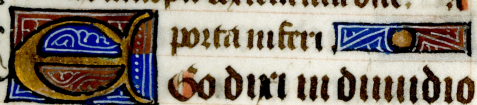 porta inferi
EGo dixi in dimidio